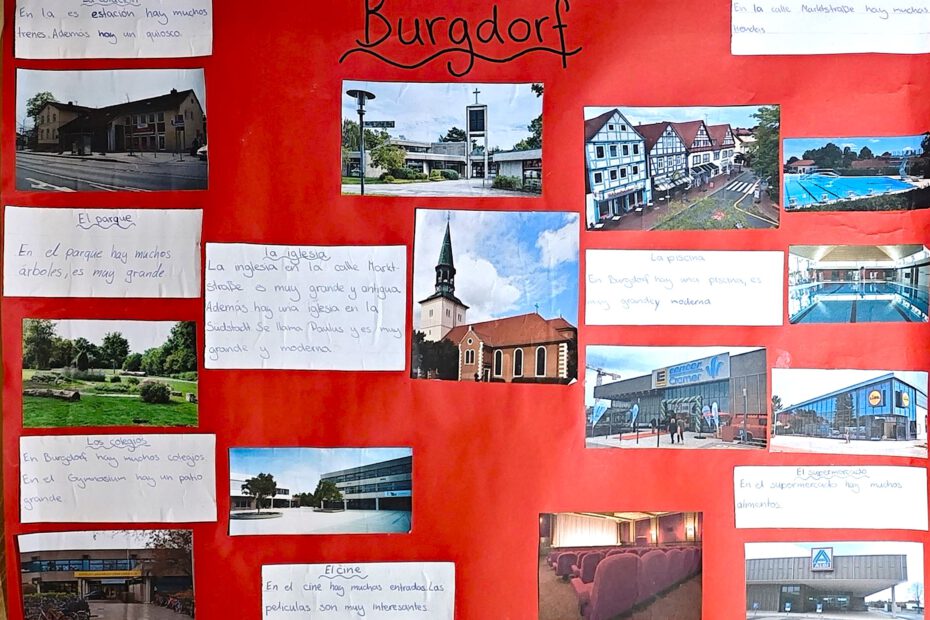 Burgdorf
La estación
En la es estación hay muchos
trenes. Además hay un quiosco.
En la calle Marktstraße hay muchas
tiendas
El parque
En el parque hay muchos
árboles, es muy grande
La iglesia
La inglesia en la calle Markt-
straße es muy grande y antigua.
Además hay una iglesia en la
Südstadt. Se llama Paulus y es muy
grande y moderna.
La piscina
En Burgdorf hay una piscina, es
muy grande y moderna
Los colegios
En Burgdorf hay muchos colegios.
En el Gymnasium hay un patio
grande.
El cine
En el cine hay muchos entradas. Las
películas son muy interesantes.
E
Cramer
LIDL
El supermercado
En el supermercado hay muchos
alimentos.
ALDI